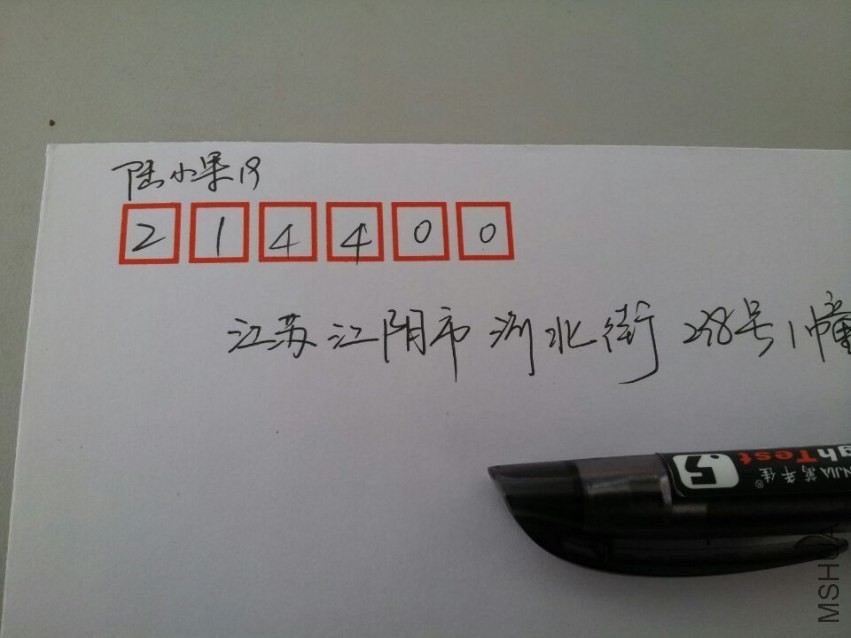 陆小果19
214400
江苏江阴市浏北街298号1幢
ghTest
NJIA 万年佳®
MSHUA